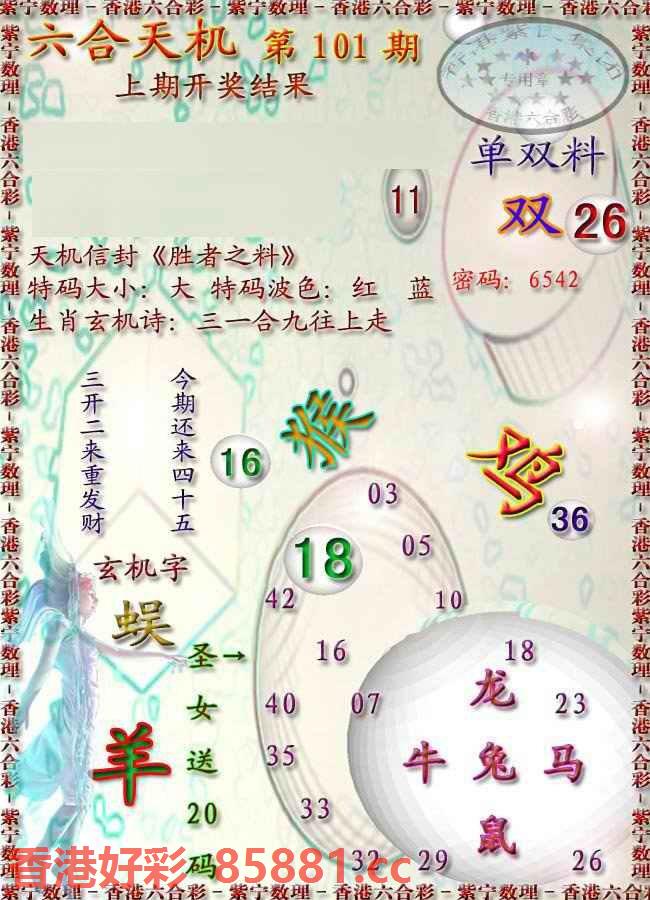 紫宁数理－香港六合彩－紫宁数理－香港六合彩－紫宁数理－香港六合彩
六合天机 第 101 期
上期开奖结果
专用章
香港六合彩
单双料
11
双 26
天机信封《胜者之料》
特码大小：大 特码波色：红 蓝
密码：6542
生肖玄机诗：三一合九往上走
今期还来四十五
三开二来重发财
猴
鸡
16
36
03
18
05
玄机字
42
10
蜈
圣女送20码
→
16
18
龙
40
07
23
羊
35
牛 兔 马
33
鼠
32
29
26
香港好彩 85881.cc
紫宁数理－香港六合彩－紫宁数理－香港六合彩－紫宁数理